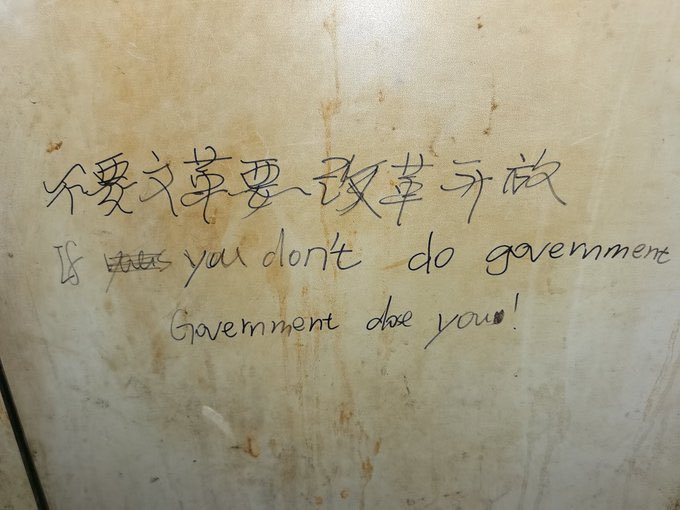 不要文革要改革开放
If you don't do government
Government dose you!